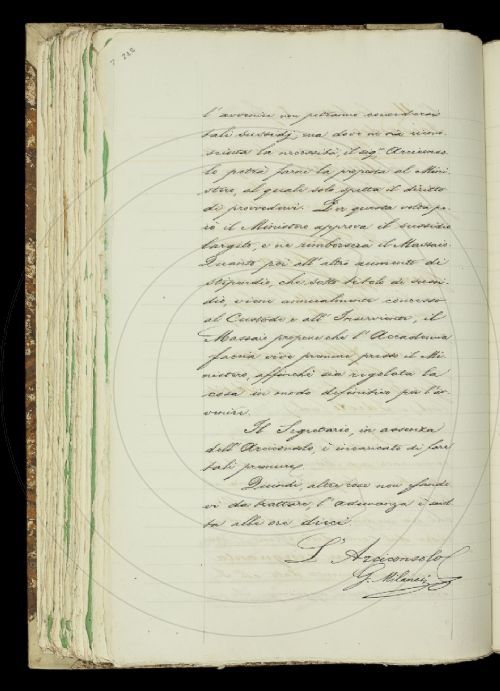 l'avvenire non potranno concedersi
tali sussidj, ma dove ne sia ricono-
sciuta la necessità, il sig.r Arciconso-
lo potrà farne la proposta al Mini-
stero, al quale solo spetta il diritto
di provvedervi. Per questa volta pe-
rò il Ministero approva il sussidio
largito, e ne rimborserà il Massaio.
Quanto poi all'altro aumento di
stipendio, che sotto titolo di sussi-
dio, viene annualmente concesso
al Custode e all'Inserviente, il
Massaio propone che l'Accademia
faccia vive premure presso il Mi-
nistero, affinchè sia regolata la
cosa in modo definitivo per l'av-
venire.
Il Segretario, in assenza
dell'Arciconsolo, è incaricato di fare
tali premure.
Quindi, altre cose non essendo-
vi da trattare, l'adunanza è sciol-
ta alle ore dieci.
L'Arciconsolo
G. Milanesi